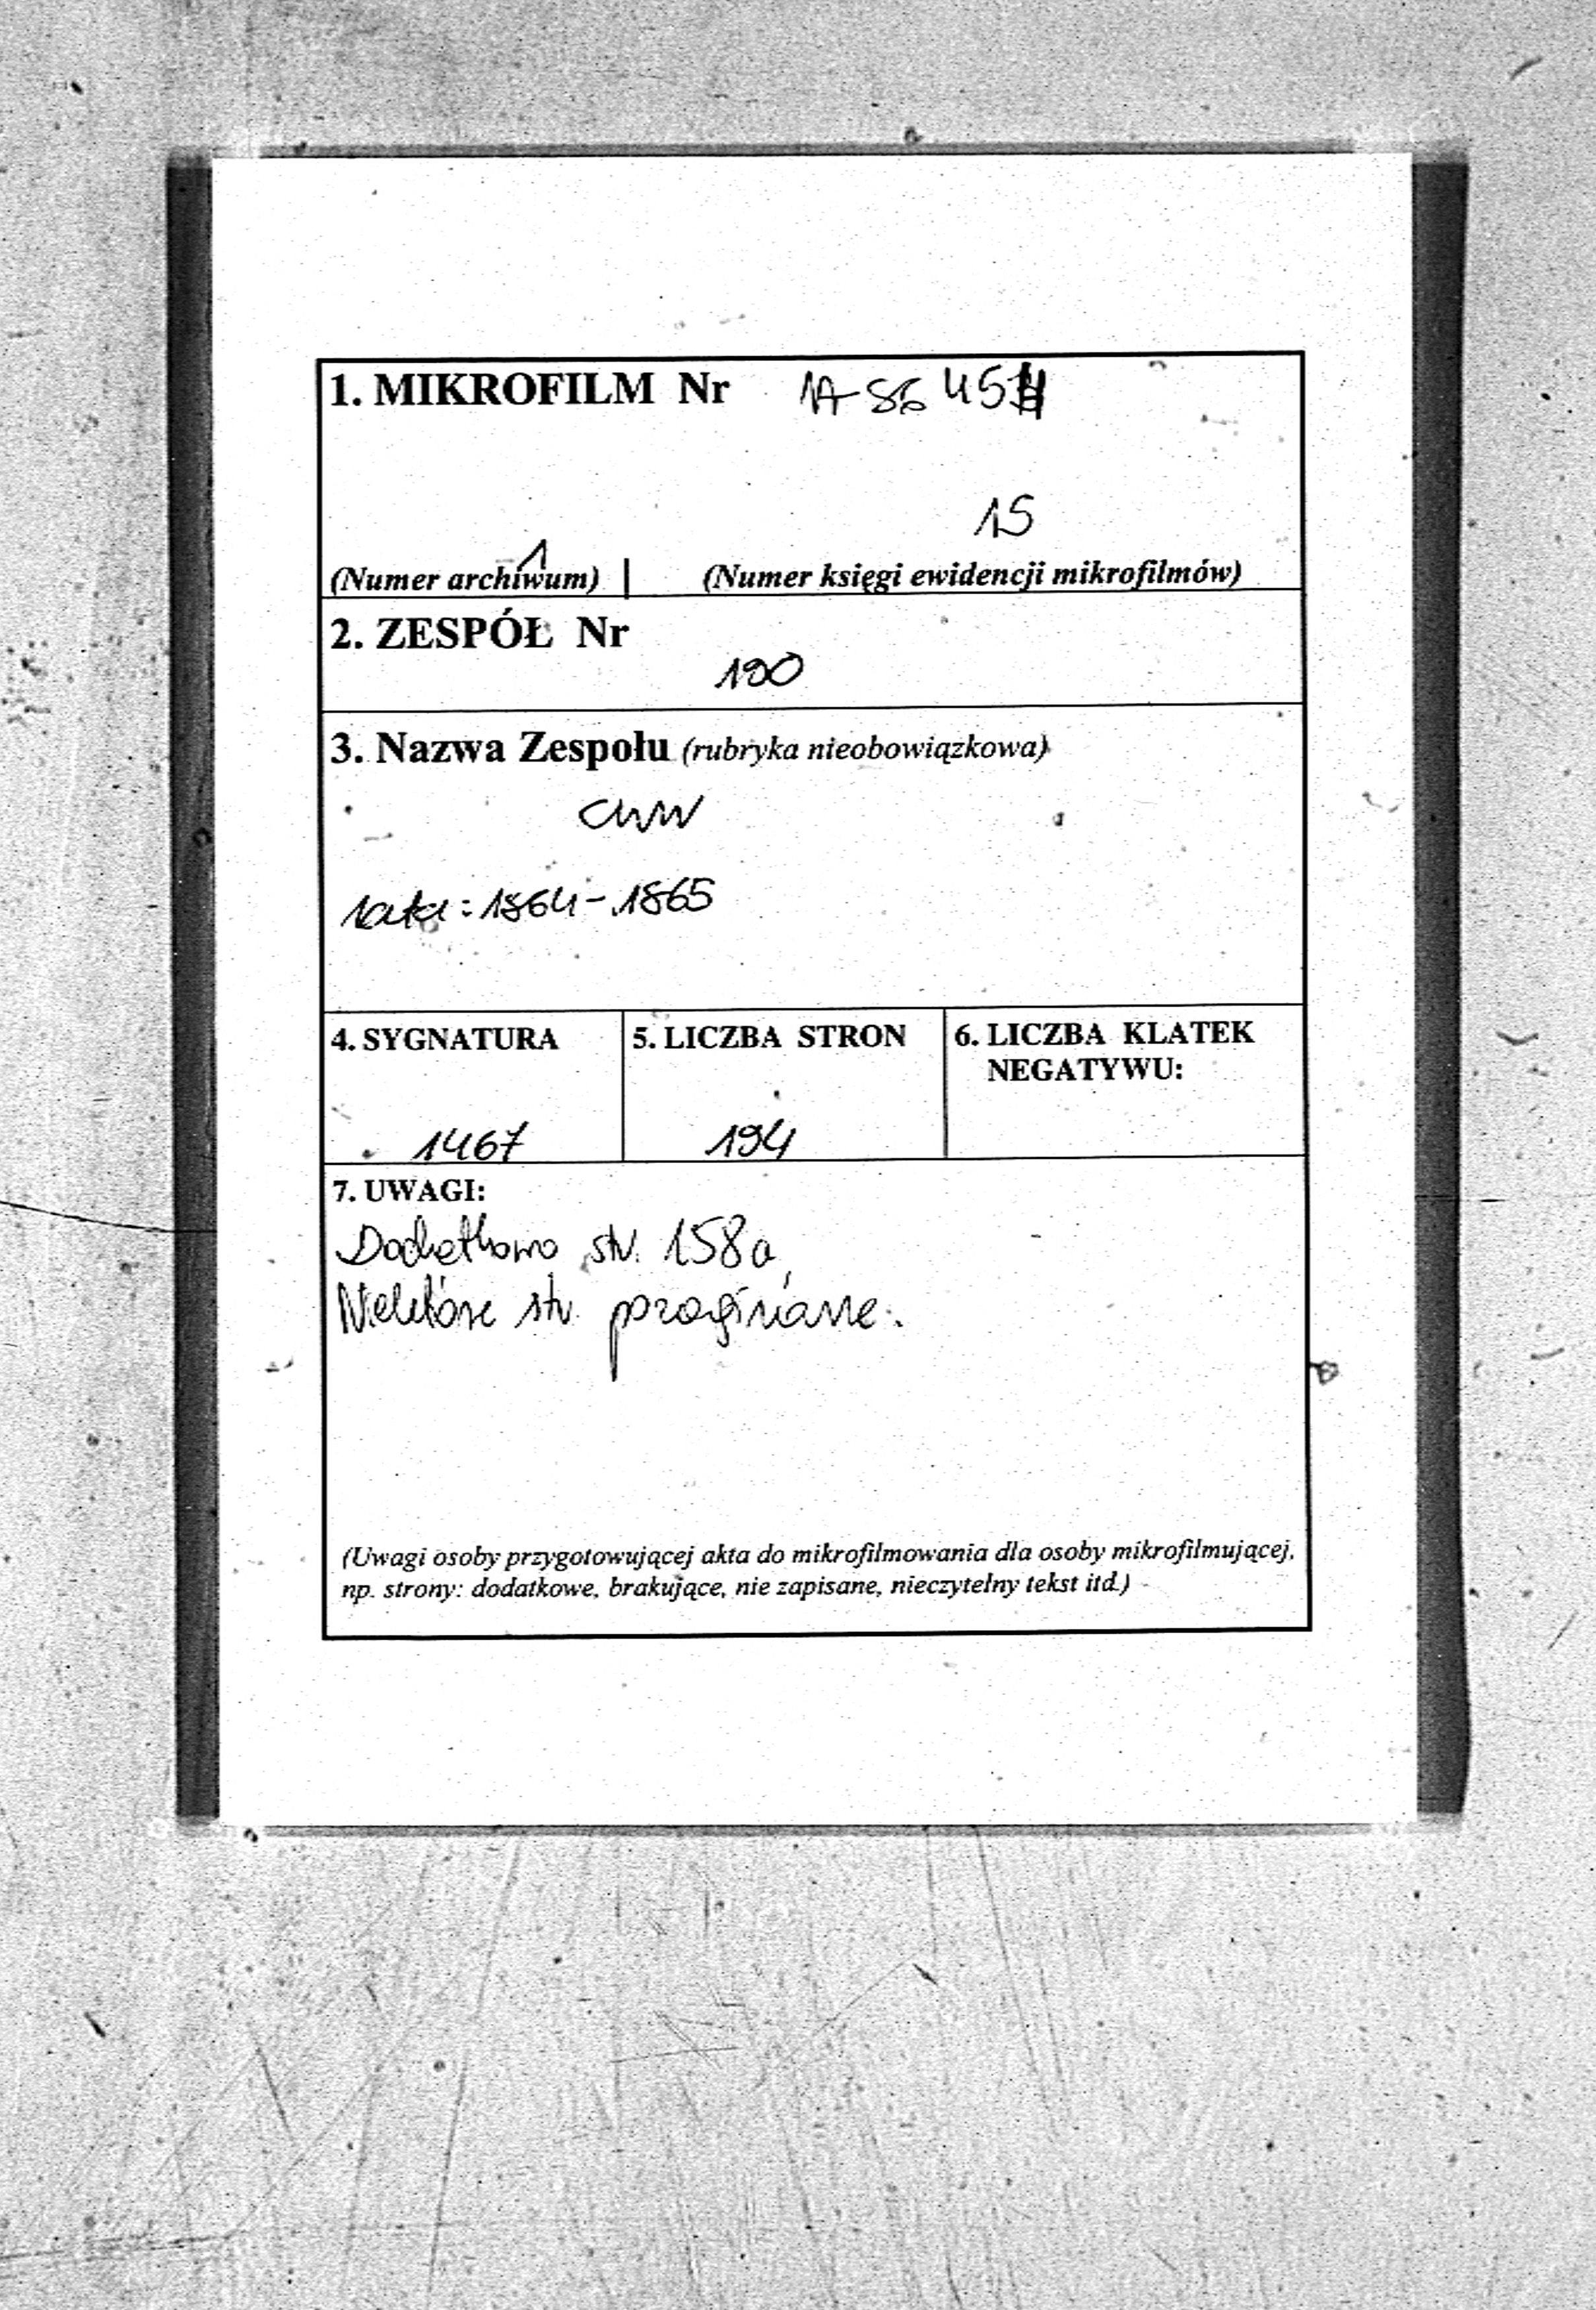 1. MIKROFILM Nr
1
15
(Numer archiwum) | (Numer księgi ewidencji mikrofilmów)
2. ZESPÓŁ Nr
190
3. Nazwa Zespołu (rubryka nieobowiązkowa)
CWW
lata: 1864-1865
4. SYGNATURA 5. LICZBA STRON 6. LICZBA KLATEK
NEGATYWU:
1467 194
7. UWAGI:
Dodatkowo str. 158a,
Niektóre str. pozaginane.
(Uwagi osoby przygotowującej akta do mikrofilmowania dla osoby mikrofilmującej,
np. strony: dodatkowe, brakujące, nie zapisane, nieczytelny tekst itd.)